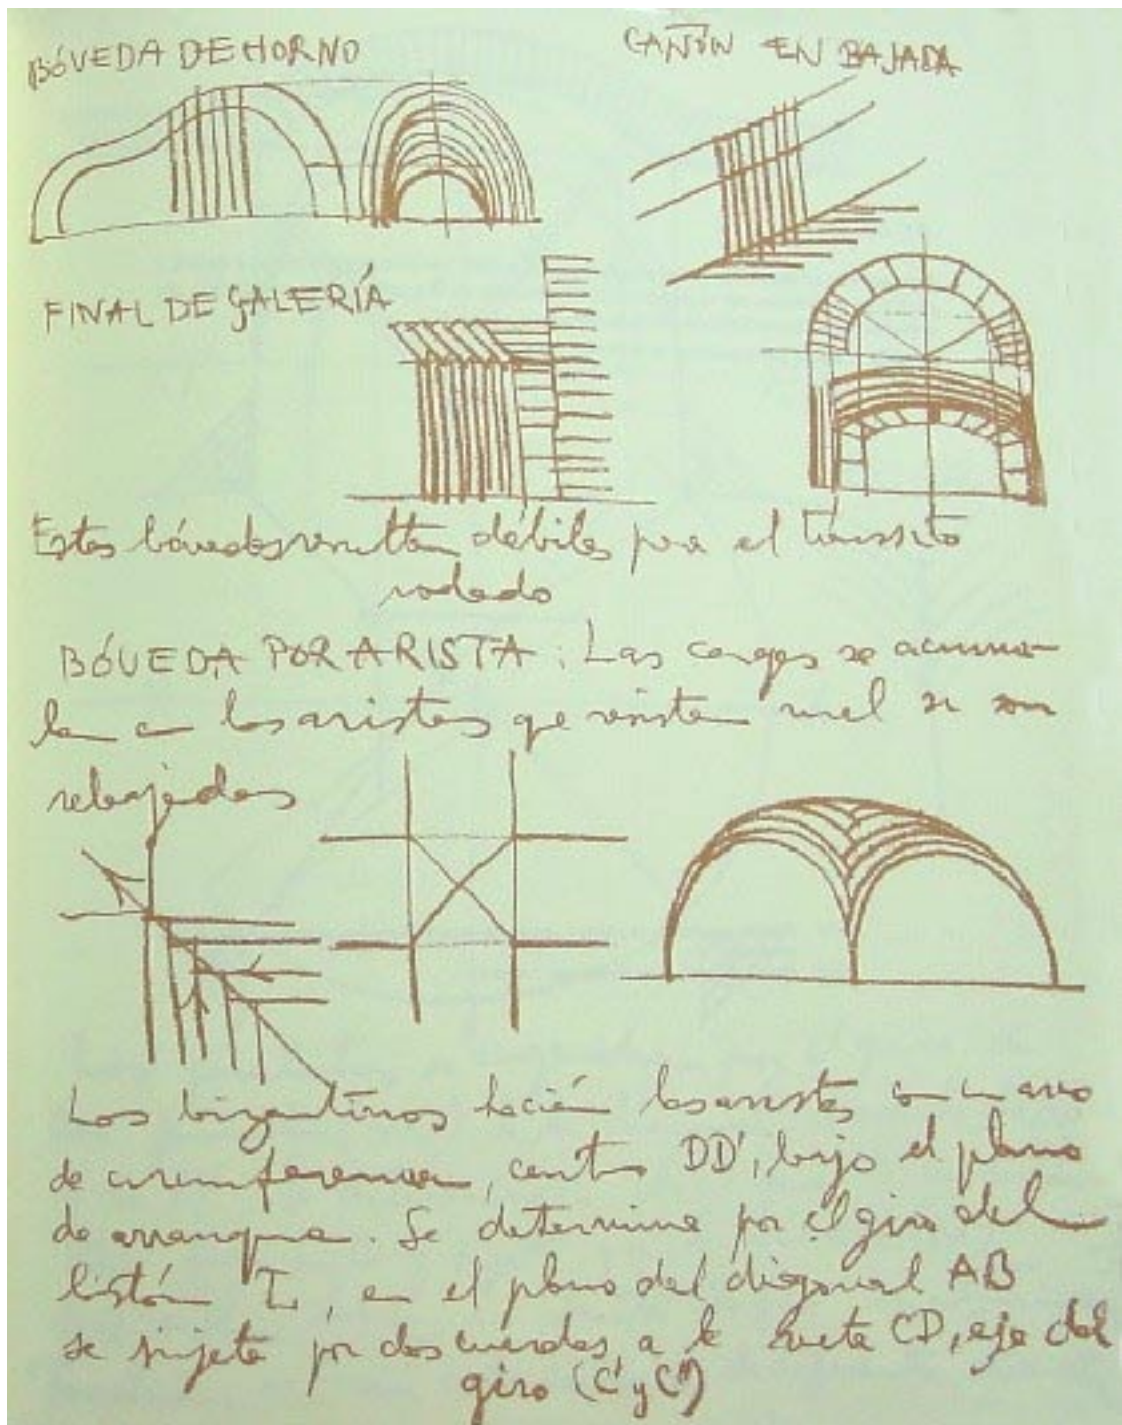 BÓVEDA DE HORNO
CAÑÓN EN BAJADA
FINAL DE GALERÍA
Estas bóvedas resultan débiles para el tránsito
rodado
BÓVEDA POR ARISTA: Las cargas se acumu-
lan en las aristas qe resisten mal si son
rebajadas
Los bizantinos hacían las aristas con un arco
de circunferencia, centro DD', bajo el plano
de arranque. Se determina por el giro del
listón L, en el plano del diagonal AB
se sujeta por dos cuerdas a la recta CD, eje del
giro (C' y C")